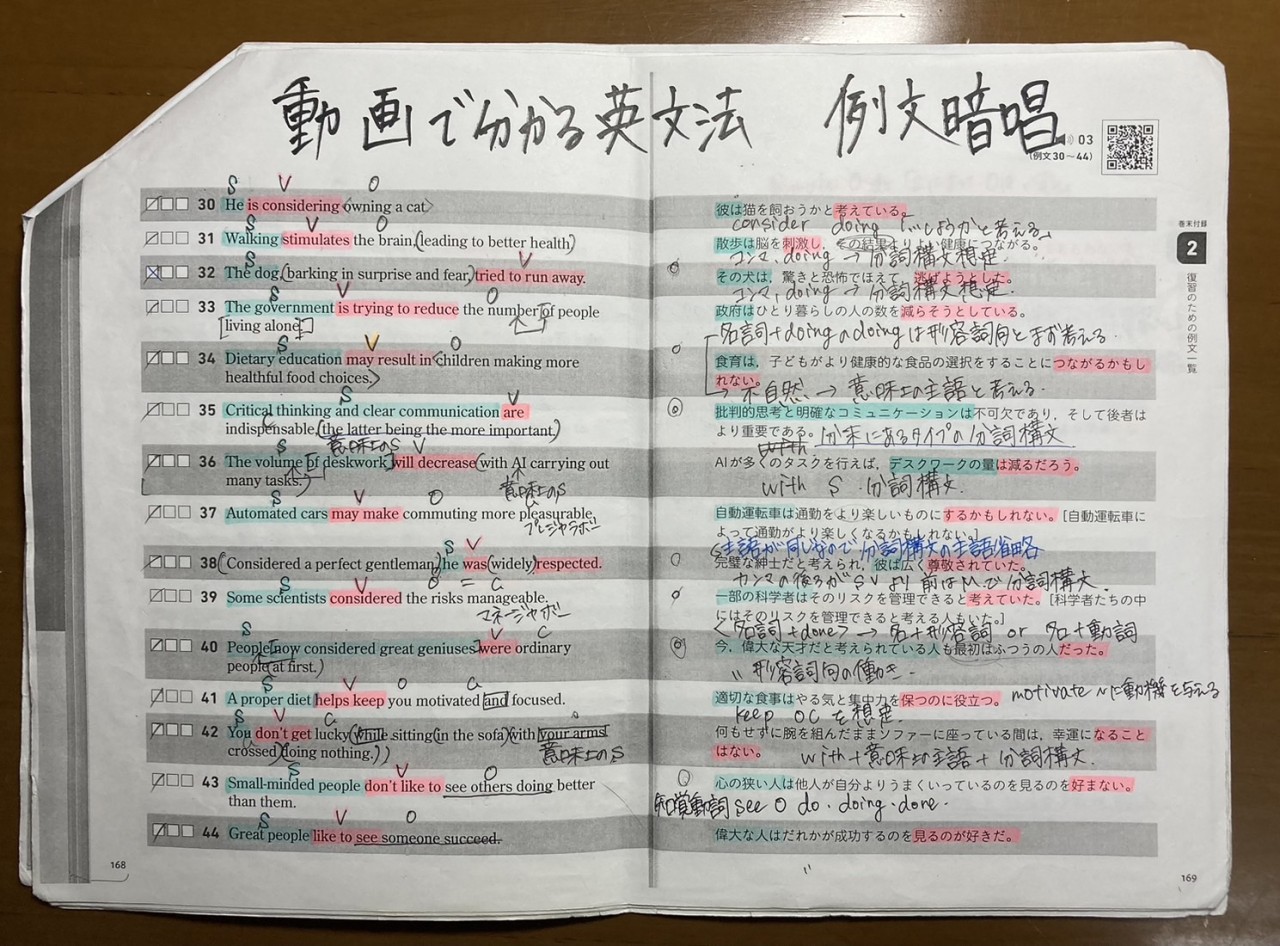 動画で分かる英文法 例文暗唱
03
(例文30〜44)
S V O
30 He is considering owning a cat.
S V O
31 Walking stimulates the brain, leading to better health.
S V
32 The dog, barking in surprise and fear, tried to run away.
S V O
33 The government is trying to reduce the number of people
living alone.
S V O
34 Dietary education may result in children making more
healthful food choices.
S V
35 Critical thinking and clear communication are
indispensable, the latter being the more important.
意味上のS
S V
36 The volume of deskwork will decrease with AI carrying out
many tasks.
意味上のS
S V O C
37 Automated cars may make commuting more pleasurable.
プレジャラボー
S V
38 Considered a perfect gentleman, he was widely respected.
S V O = C
39 Some scientists considered the risks manageable.
マネージャボー
S V C
40 People now considered great geniuses were ordinary
people at first.
S V O C
41 A proper diet helps keep you motivated and focused.
S V C
42 You don't get lucky while sitting in the sofa with your arms
crossed, doing nothing.
意味上のS
S V O
43 Small-minded people don't like to see others doing better
than them.
S V O
44 Great people like to see someone succeed.
168
彼は猫を飼おうかと考えている。
consider doing 「…しようかと考える」
散歩は脳を刺激し、その結果より良い健康につながる。
コンマ, doing → 分詞構文想定
その犬は、驚きと恐怖でほえて、逃げようとした。
コンマ, doing → 分詞構文想定
政府はひとり暮らしの人の数を減らそうとしている。
名詞+doingのdoingは形容詞句とまず考える.
食育は、子どもがより健康的な食品の選択をすることにつながるかもし
れない。
→ 不自然 → 意味上の主語と考える.
批判的思考と明確なコミュニケーションは不可欠であり、そして後者は
より重要である。
分末にあるタイプの分詞構文
with
AIが多くのタスクを行えば、デスクワークの量は減るだろう。
with S 分詞構文.
自動運転車は通勤をより楽しいものにするかもしれない。[自動運転車に
よって通勤がより楽しくなるかもしれない。]
主語が同じなので分詞構文の主語省略
完璧な紳士だと考えられ、彼は広く尊敬されていた。
カンマの後ろがSVより前はMで分詞構文.
一部の科学者はそのリスクを管理できると考えていた。[科学者たちの中
にはそのリスクを管理できると考える人もいた。]
<名詞+done> → 名+形容詞 or 名+動詞
今、偉大な天才だと考えられている人も最初はふつうの人だった。
形容詞句の働き
適切な食事はやる気と集中力を保つのに役立つ。
motivate 〜に動機を与える
keep OCを想定.
何もせずに腕を組んだままソファーに座っている間は、幸運になること
はない。
with+意味上の主語+分詞構文
心の狭い人は他人が自分よりうまくいっているのを見るのを好まない。
知覚動詞 see O do・doing・done.
偉大な人はだれかが成功するのを見るのが好きだ。
巻末付録
2
復習のための例文一覧
169